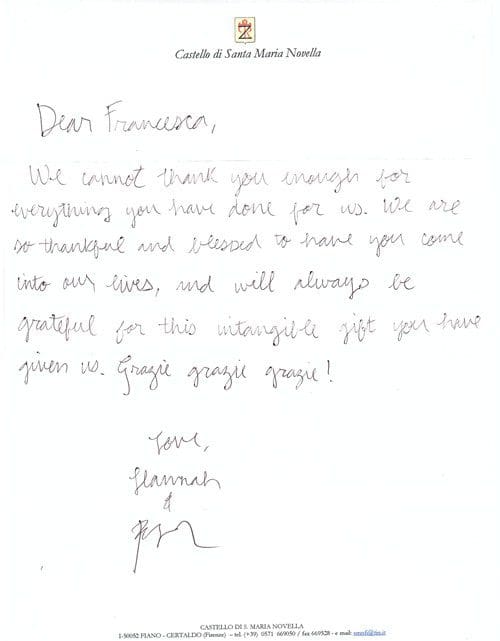 Castello di Santa Maria Novella
Dear Francesca,
We cannot thank you enough for
everything you have done for us. We are
so thankful and blessed to have you come
into our lives, and will always be
grateful for this intangible gift you have
given us. Grazie grazie grazie!
Love,
Hannah
&
CASTELLO DI S. MARIA NOVELLA
I-50052 FIANO - CERTALDO (Firenze) – tel. (+39) 0571 669050 / fax 669328 - e mail: